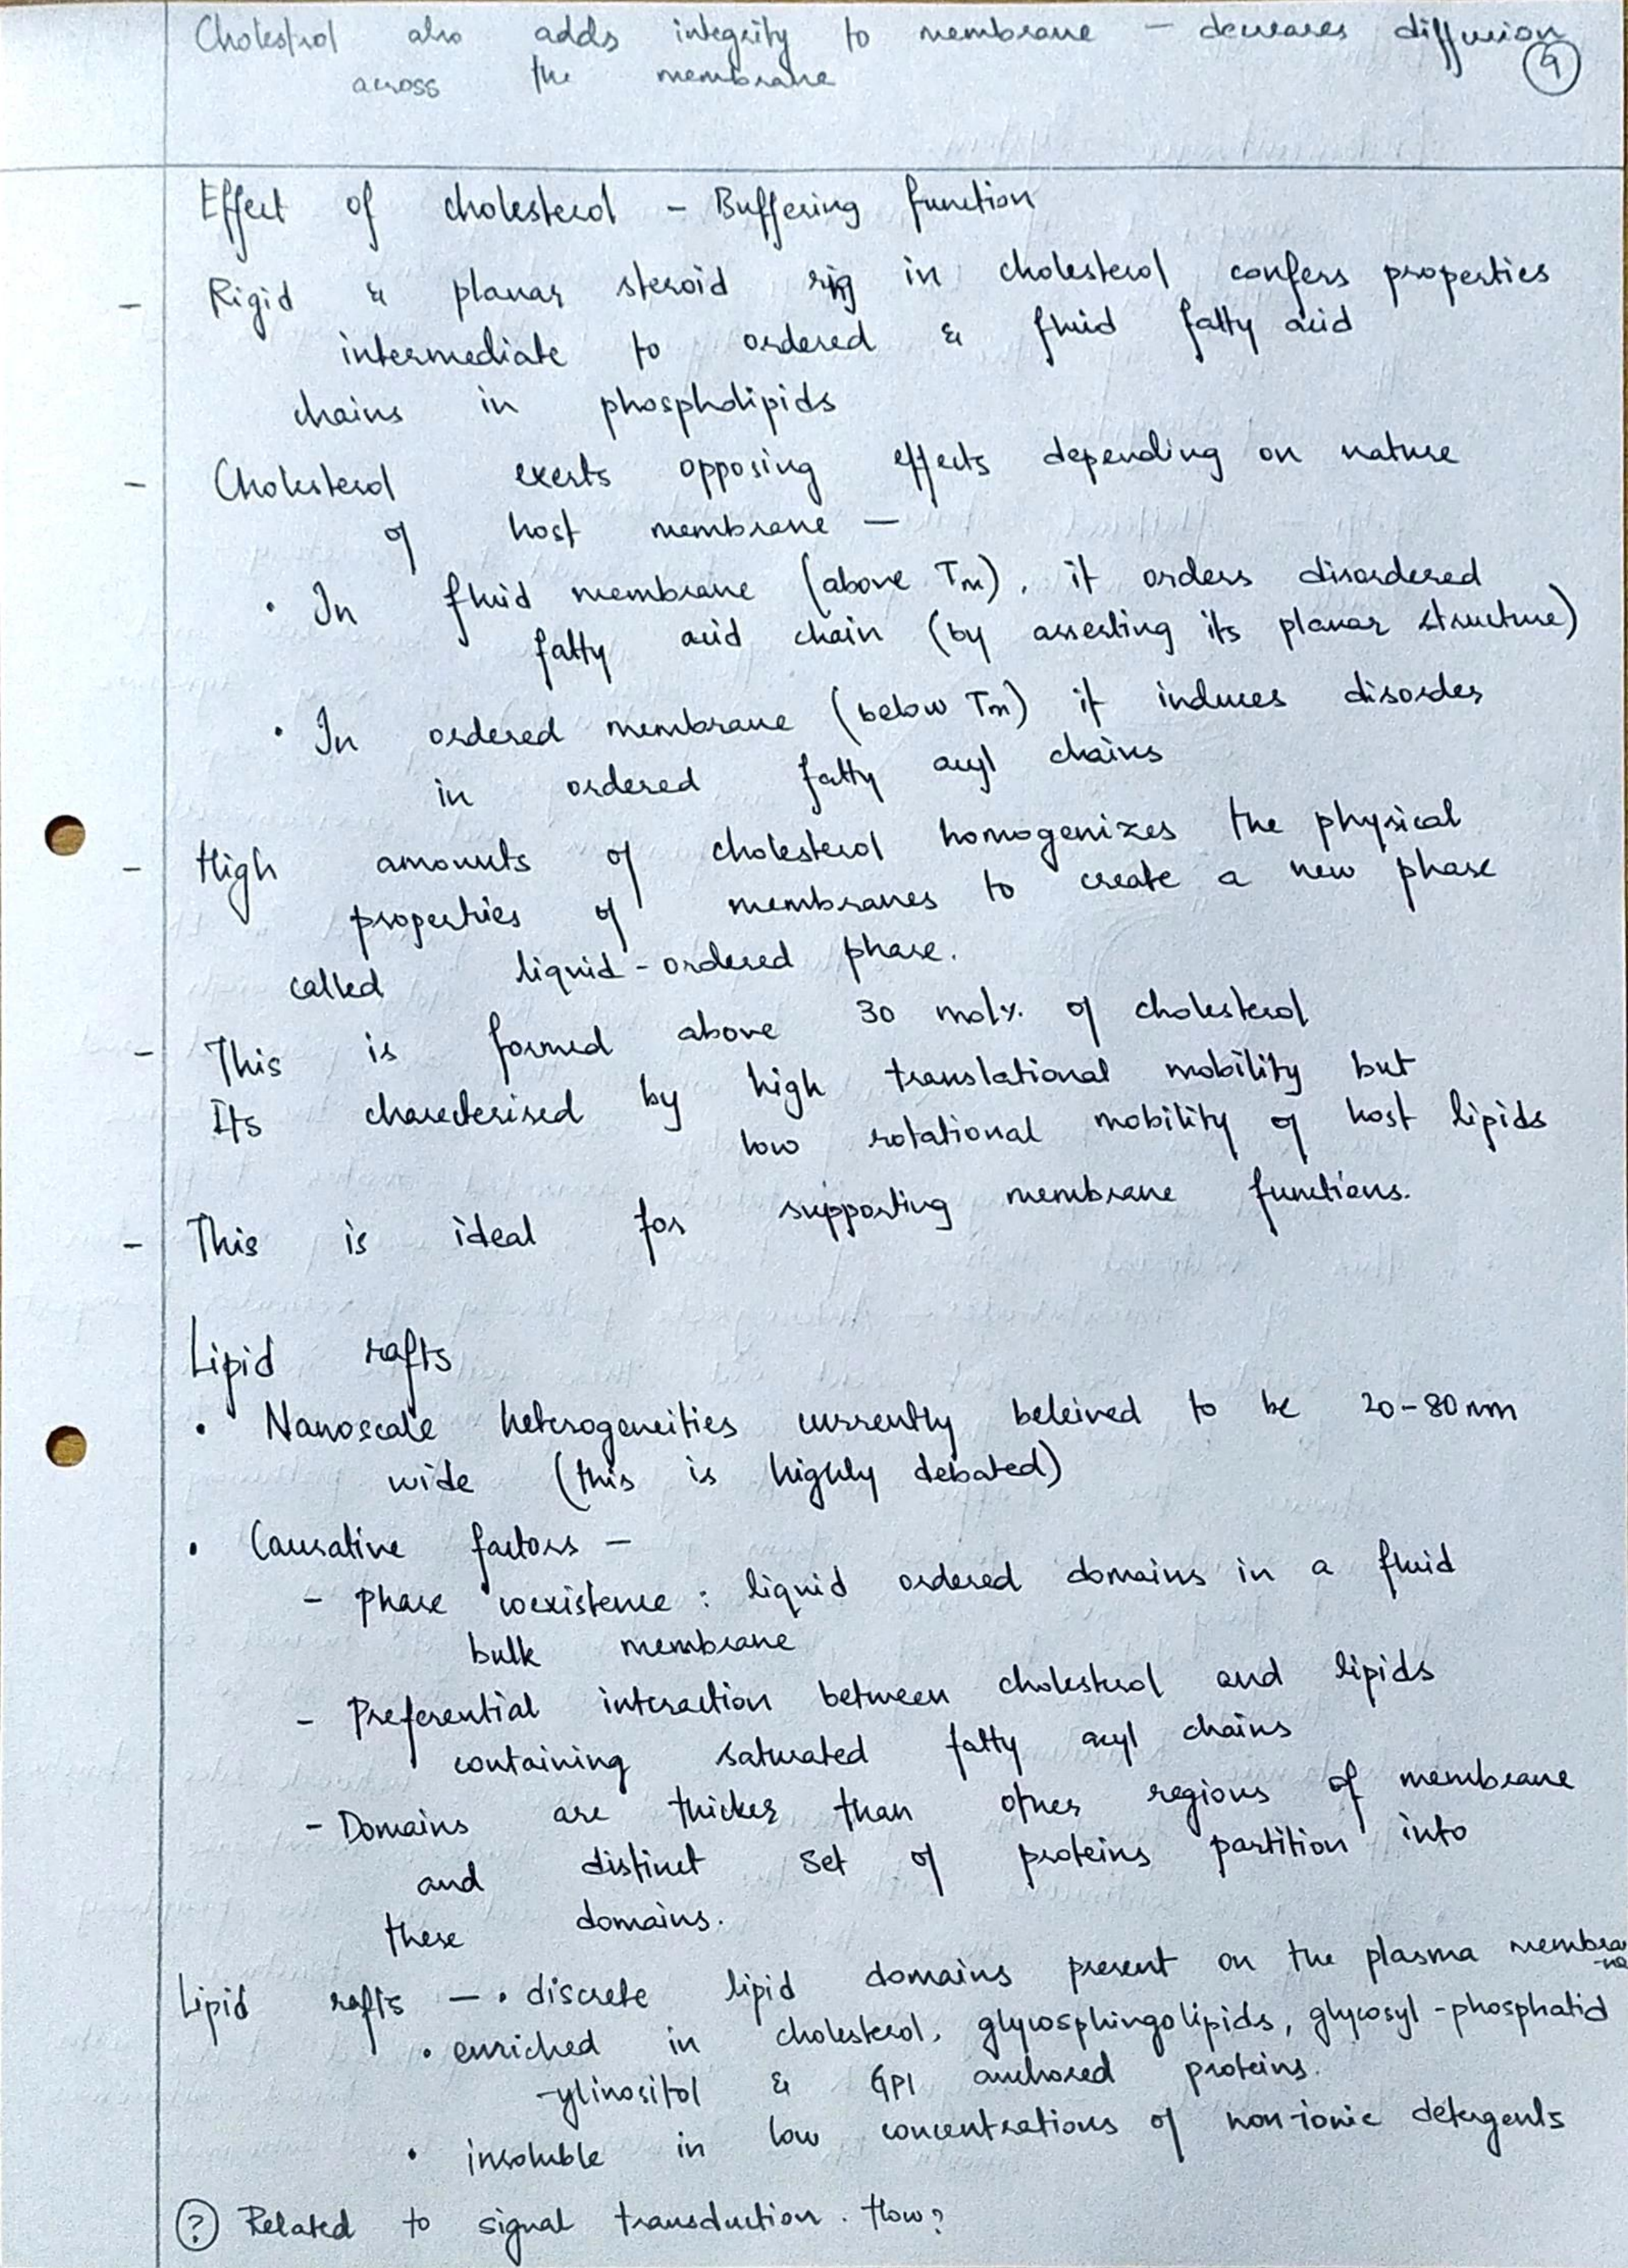 Cholestrol also adds integrity to membrane – decreases diffusion
9
across the membrane
Effect of cholesterol – Buffering function
– Rigid & planar steroid rig in cholesterol confers properties
intermediate to ordered & fluid fatty acid
chains in phospholipids
– Cholesterol exerts opposing effects depending on nature
of host membrane –
• In fluid membrane (above Tm), it orders disordered
fatty acid chain (by asserting its planar structure)
• In ordered membrane (below Tm) it induces disorder
in ordered fatty acyl chains
– High amounts of cholesterol homogenizes the physical
properties of membranes to create a new phase
called liquid-ordered phase.
– This is formed above 30 mol% of cholesterol
Its charecterised by high translational mobility but
low rotational mobility of host lipids
– This is ideal for supporting membrane functions.
Lipid rafts
• Nanoscale heterogeneities currently beleived to be 20-80nm
wide (this is highly debated)
• Causative factors –
– Phase coexistence : liquid ordered domains in a fluid
bulk membrane
– Preferential interaction between cholesterol and lipids
containing saturated fatty acyl chains
– Domains are thicker than other regions of membrane
and distinct set of proteins partition into
these domains.
Lipid rafts – • discrete lipid domains present on the plasma membra
-ne
• enriched in cholesterol, glycosphingolipids, glycosyl-phosphatid
-ylinositol & GPI anchored proteins.
• insoluble in low concentrations of non-ionic detergents
? Related to signal transduction. How?